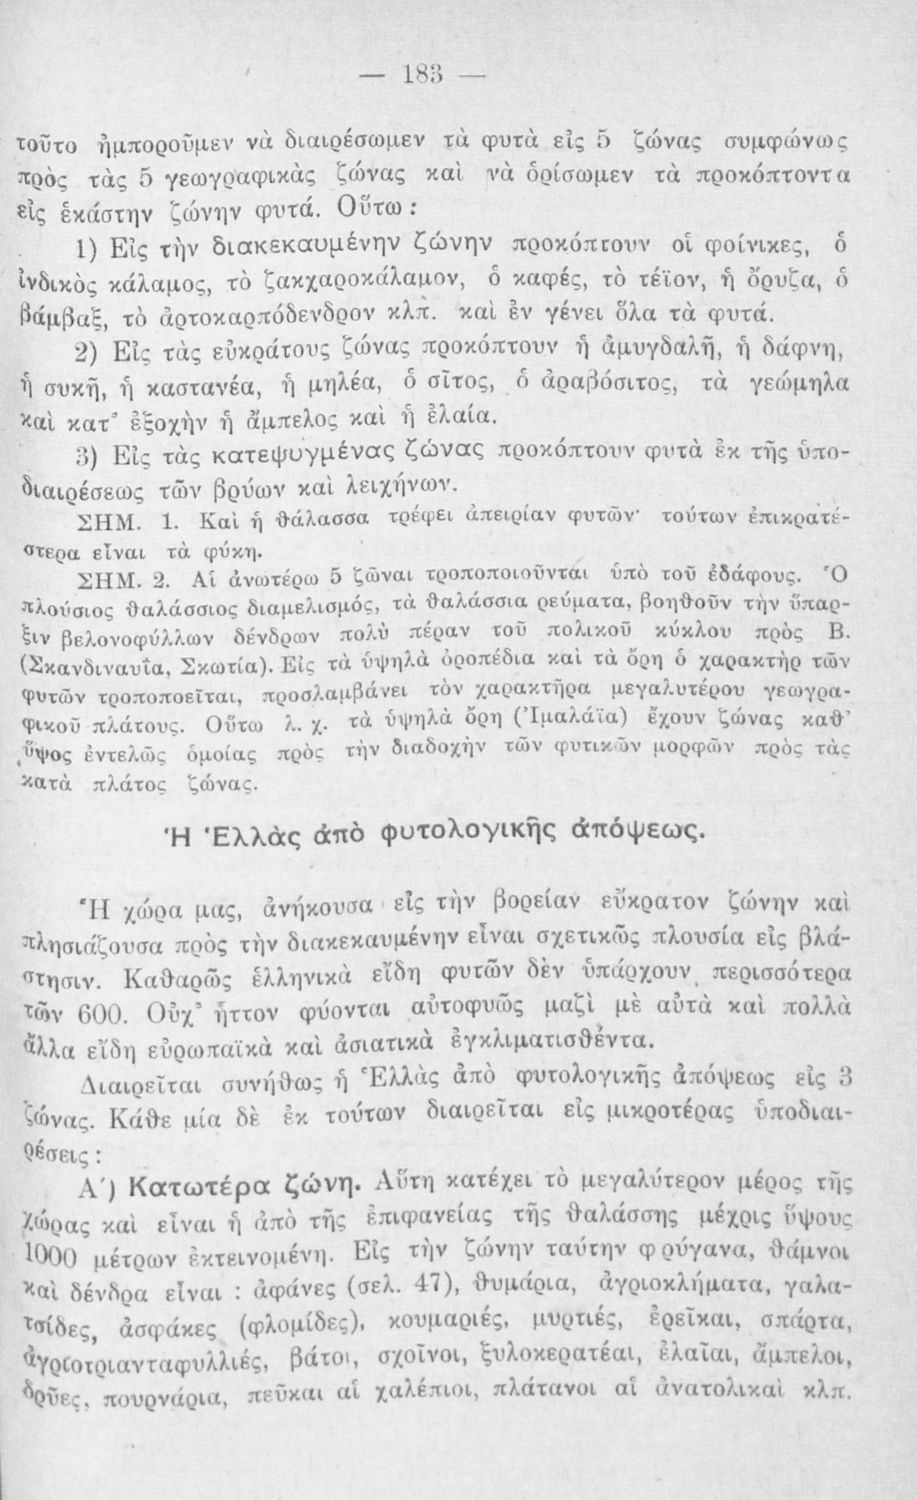 — 183 —
τοῦτο ἠμποροῦμεν νὰ διαιρέσωμεν τὰ φυτὰ εἰς 5 ζώνας συμφώνως
πρὸς τὰς 5 γεωγραφικὰς ζώνας καὶ νὰ ὁρίσωμεν τὰ προκόπτοντα
εἰς ἑκάστην ζώνην φυτά. Οὕτω :
1) Εἰς τὴν διακεκαυμένην ζώνην προκόπτουν οἱ φοίνικες, ὁ
ἰνδικὸς κάλαμος, τὸ ζακχαροκάλαμον, ὁ καφές, τὸ τέϊον, ἡ ὄρυζα, ὁ
βάμβαξ, τὸ ἀρτοκαρπόδενδρον κλπ. καὶ ἐν γένει ὅλα τὰ φυτά.
2) Εἰς τὰς εὐκράτους ζώνας προκόπτουν ἡ ἀμυγδαλῆ, ἡ δάφνη,
ἡ συκῆ, ἡ καστανέα, ἡ μηλέα, ὁ σῖτος, ὁ ἀραβόσιτος, τὰ γεώμηλα
καὶ κατ’ ἐξοχὴν ἡ ἄμπελος καὶ ἡ ἐλαία.
3) Εἰς τὰς κατεψυγμένας ζώνας προκόπτουν φυτὰ ἐκ τῆς ὑπο-
διαιρέσεως τῶν βρύων καὶ λειχήνων.
ΣΗΜ. 1. Καὶ ἡ θάλασσα τρέφει ἀπειρίαν φυτῶν· τούτων ἐπικρατέ-
στερα εἶναι τὰ φύκη.
ΣΗΜ. 2. Αἱ ἀνωτέρω 5 ζῶναι τροποποιοῦνται ὑπὸ τοῦ ἐδάφους. Ὁ
πλούσιος θαλάσσιος διαμελισμός, τὰ θαλάσσια ρεύματα, βοηθοῦν τὴν ὕπαρ-
ξιν βελονοφύλλων δένδρων πολὺ πέραν τοῦ πολικοῦ κύκλου πρὸς Β.
(Σκανδιναυΐα, Σκωτία). Εἰς τὰ ὑψηλὰ ὀροπέδια καὶ τὰ ὄρη ὁ χαρακτὴρ τῶν
φυτῶν τροποποεῖται, προσλαμβάνει τὸν χαρακτῆρα μεγαλυτέρου γεωγρα-
φικοῦ πλάτους. Οὕτω λ. χ. τὰ ὑψηλὰ ὄρη (Ἰμαλάϊα) ἔχουν ζώνας καθ’
ὕψος ἐντελῶς ὁμοίας πρὸς τὴν διαδοχὴν τῶν φυτικῶν μορφῶν πρὸς τὰς
κατὰ πλάτος ζώνας.
Ἡ Ἑλλὰς ἀπὸ φυτολογικῆς ἀπόψεως.
Ἡ χώρα μας, ἀνήκουσα εἰς τὴν βορείαν εὔκρατον ζώνην καὶ
πλησιάζουσα πρὸς τὴν διακεκαυμένην εἶναι σχετικῶς πλουσία εἰς βλά-
στησιν. Καθαρῶς ἑλληνικὰ εἴδη φυτῶν δὲν ὑπάρχουν περισσότερα
τῶν 600. Οὐχ’ ἧττον φύονται αὐτοφυῶς μαζὶ μὲ αὐτὰ καὶ πολλὰ
ἄλλα εἴδη εὐρωπαϊκὰ καὶ ἀσιατικὰ ἐγκλιματισθέντα.
Διαιρεῖται συνήθως ἡ Ἑλλὰς ἀπὸ φυτολογικῆς ἀπόψεως εἰς 3
ζώνας. Κάθε μία δὲ ἐκ τούτων διαιρεῖται εἰς μικροτέρας ὑποδιαι-
ρέσεις :
Α΄) Κατωτέρα ζώνη. Αὕτη κατέχει τὸ μεγαλύτερον μέρος τῆς
χώρας καὶ εἶναι ἡ ἀπὸ τῆς ἐπιφανείας τῆς θαλάσσης μέχρις ὕψους
1000 μέτρων ἐκτεινομένη. Εἰς τὴν ζώνην ταύτην φρύγανα, θάμνοι
καὶ δένδρα εἶναι : ἀφάνες (σελ. 47), θυμάρια, ἀγριοκλήματα, γαλα-
τσίδες, ἀσφάκες (φλομίδες), κουμαριές, μυρτιές, ἐρεῖκαι, σπάρτα,
ἀγριοτριανταφυλλιές, βάτοι, σχοῖνοι, ξυλοκερατέαι, ἐλαῖαι, ἄμπελοι,
δρῦες, πουρνάρια, πεῦκαι αἱ χαλέπιοι, πλάτανοι αἱ ἀνατολικαὶ κλπ.